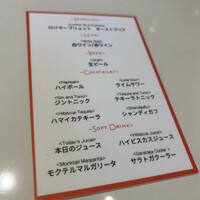 ロリマーブリュット オーストラリア
~Wine~
<White/Red>
白ワイン/赤ワイン
~Beer~
<Draft>
生ビール
~Cocktails~
<Highball>
ハイボール
<Lime Sour>
ライムサワー
<Gin and Tonic>
ジントニック
<Tequila and Tonic>
テキーラトニック
<Hibiscus Tequila>
ハマイカテキーラ
<Shandygaff>
シャンディガフ
~Soft Drink~
<Today's Juice>
本日のジュース
<Hibiscus Juice>
ハイビスカスジュース
<Mocktail Margarita>
モクテルマルガリータ
<Saratoga Cooler>
サラトガクーラー